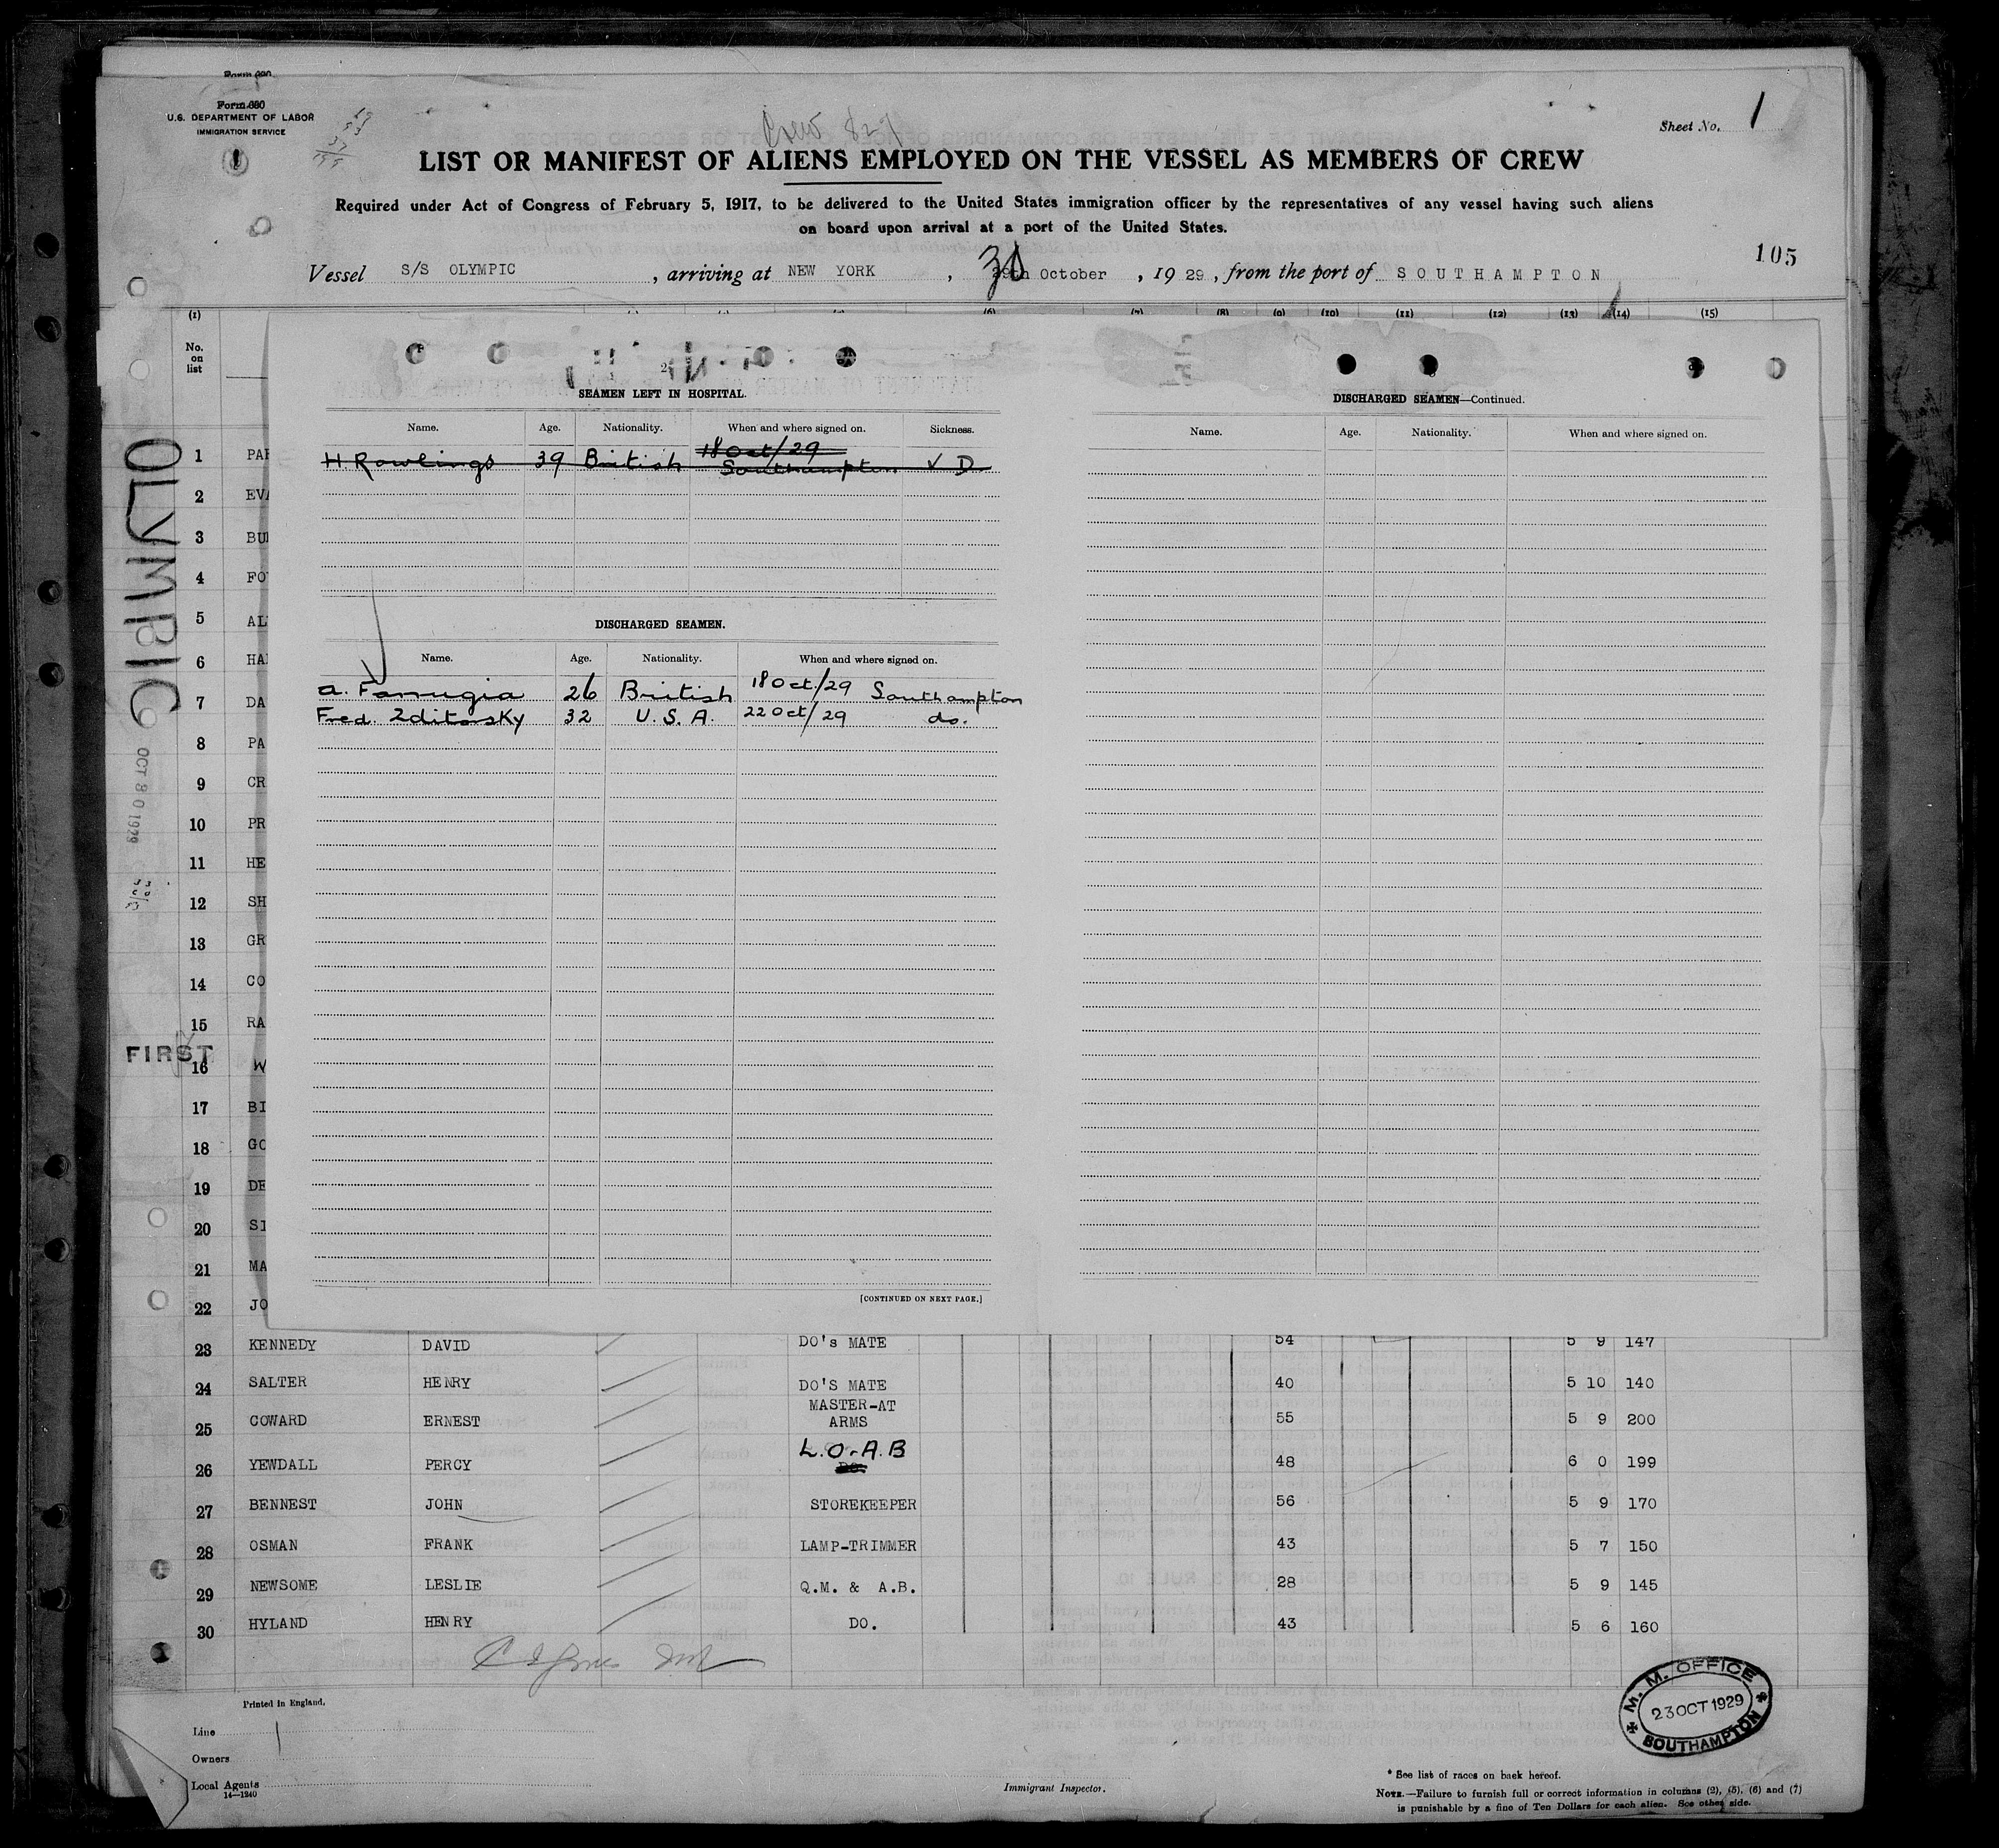 Form 680
U.S. DEPARTMENT OF LABOR
IMMIGRATION SERVICE
Crew 829
Sheet No. 1
LIST OR MANIFEST OF ALIENS EMPLOYED ON THE VESSEL AS MEMBERS OF CREW
Required under Act of Congress of February 5, 1917, to be delivered to the United States immigration officer by the representatives of any vessel having such aliens
on board upon arrival at a port of the United States.
105
Vessel S/S OLYMPIC, arriving at NEW YORK, 30 29th October, 1929, from the port of SOUTHAMPTON
(1) (6) (7) (8) (9) (10) (11) (12) (13) (14) (15)
No. on list
OLYMPIC
OCT 30 1929
FIRST
2
SEAMEN LEFT IN HOSPITAL.
Name. Age. Nationality. When and where signed on. Sickness.
H Rowlings 39 British 18 Oct/29 Southampton V D
DISCHARGED SEAMEN.
Name. Age. Nationality. When and where signed on.
a. Farrugia 26 British 18 Oct/29 Southampton
Fred. Zditosky 32 U.S.A. 22 Oct/29 do.
[CONTINUED ON NEXT PAGE.]
3
DISCHARGED SEAMEN—Continued.
Name. Age. Nationality. When and where signed on.
1 PAR
2 EVA
3 BUR
4 FO
5 AL
6 HA
7 DA
8 PA
9 CR
10 PR
11 HE
12 SH
13 GR
14 CO
15 RA
16 W
17 BI
18 GO
19 DE
20 SI
21 MA
22 JO
23 KENNEDY DAVID DO's MATE 54 5 9 147
24 SALTER HENRY DO'S MATE 40 5 10 140
25 COWARD ERNEST MASTER-AT ARMS 55 5 9 200
26 YEWDALL PERCY L.O.A.B DO. 48 6 0 199
27 BENNEST JOHN STOREKEEPER 56 5 9 170
28 OSMAN FRANK LAMP-TRIMMER 43 5 7 150
29 NEWSOME LESLIE Q.M. & A.B. 28 5 9 145
30 HYLAND HENRY DO. 43 5 6 160
Printed in England.
Line
Owners
Local Agents
14—1240
Immigrant Inspector.
M. M. OFFICE
23 OCT 1929
SOUTHAMPTON
* See list of races on back hereof.
NOTE.—Failure to furnish full or correct information in columns (2), (5), (6) and (7)
is punishable by a fine of Ten Dollars for each alien. See other side.